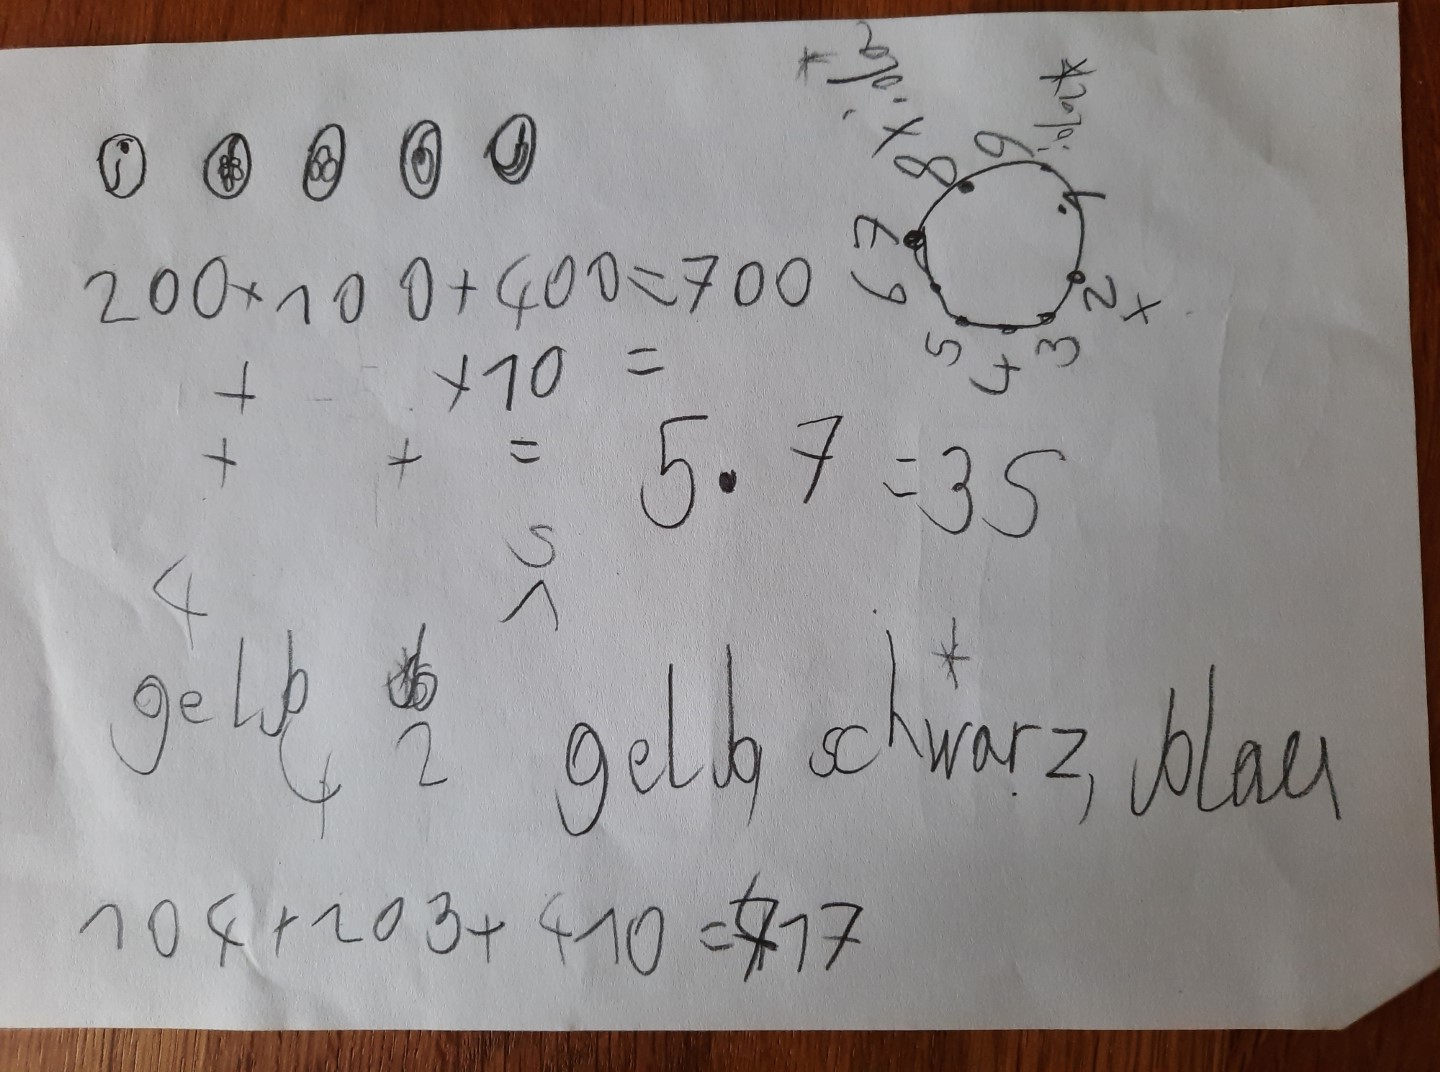 200+100+400=700
+ +10 =
+ + =
5 · 7 = 35
4 5
1
gelb
4 2
gelb, schwarz, blau
104+203+410=717
9
8
7
6
5
4
3
2 x
1
x